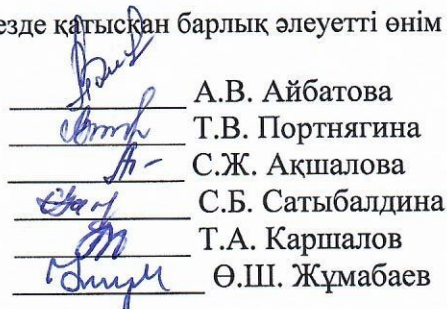 езде қатысқан барлық әлеуетті өнім
А.В. Айбатова
Т.В. Портнягина
С.Ж. Ақшалова
С.Б. Сатыбалдина
Т.А. Каршалов
Ө.Ш. Жұмабаев